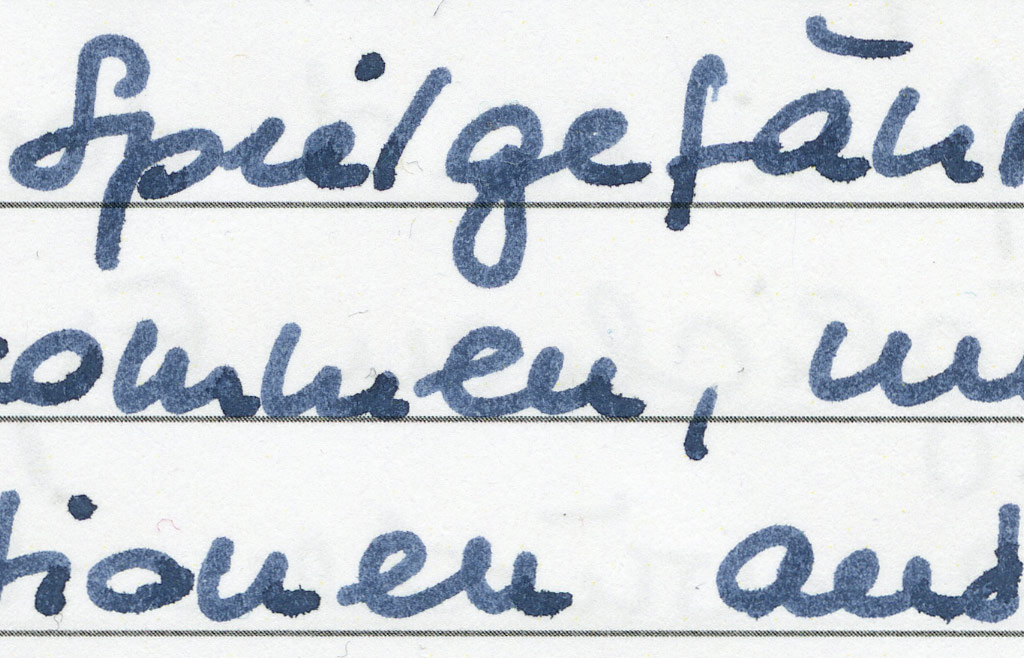 Spielgefäh
ommen, un
tionen and